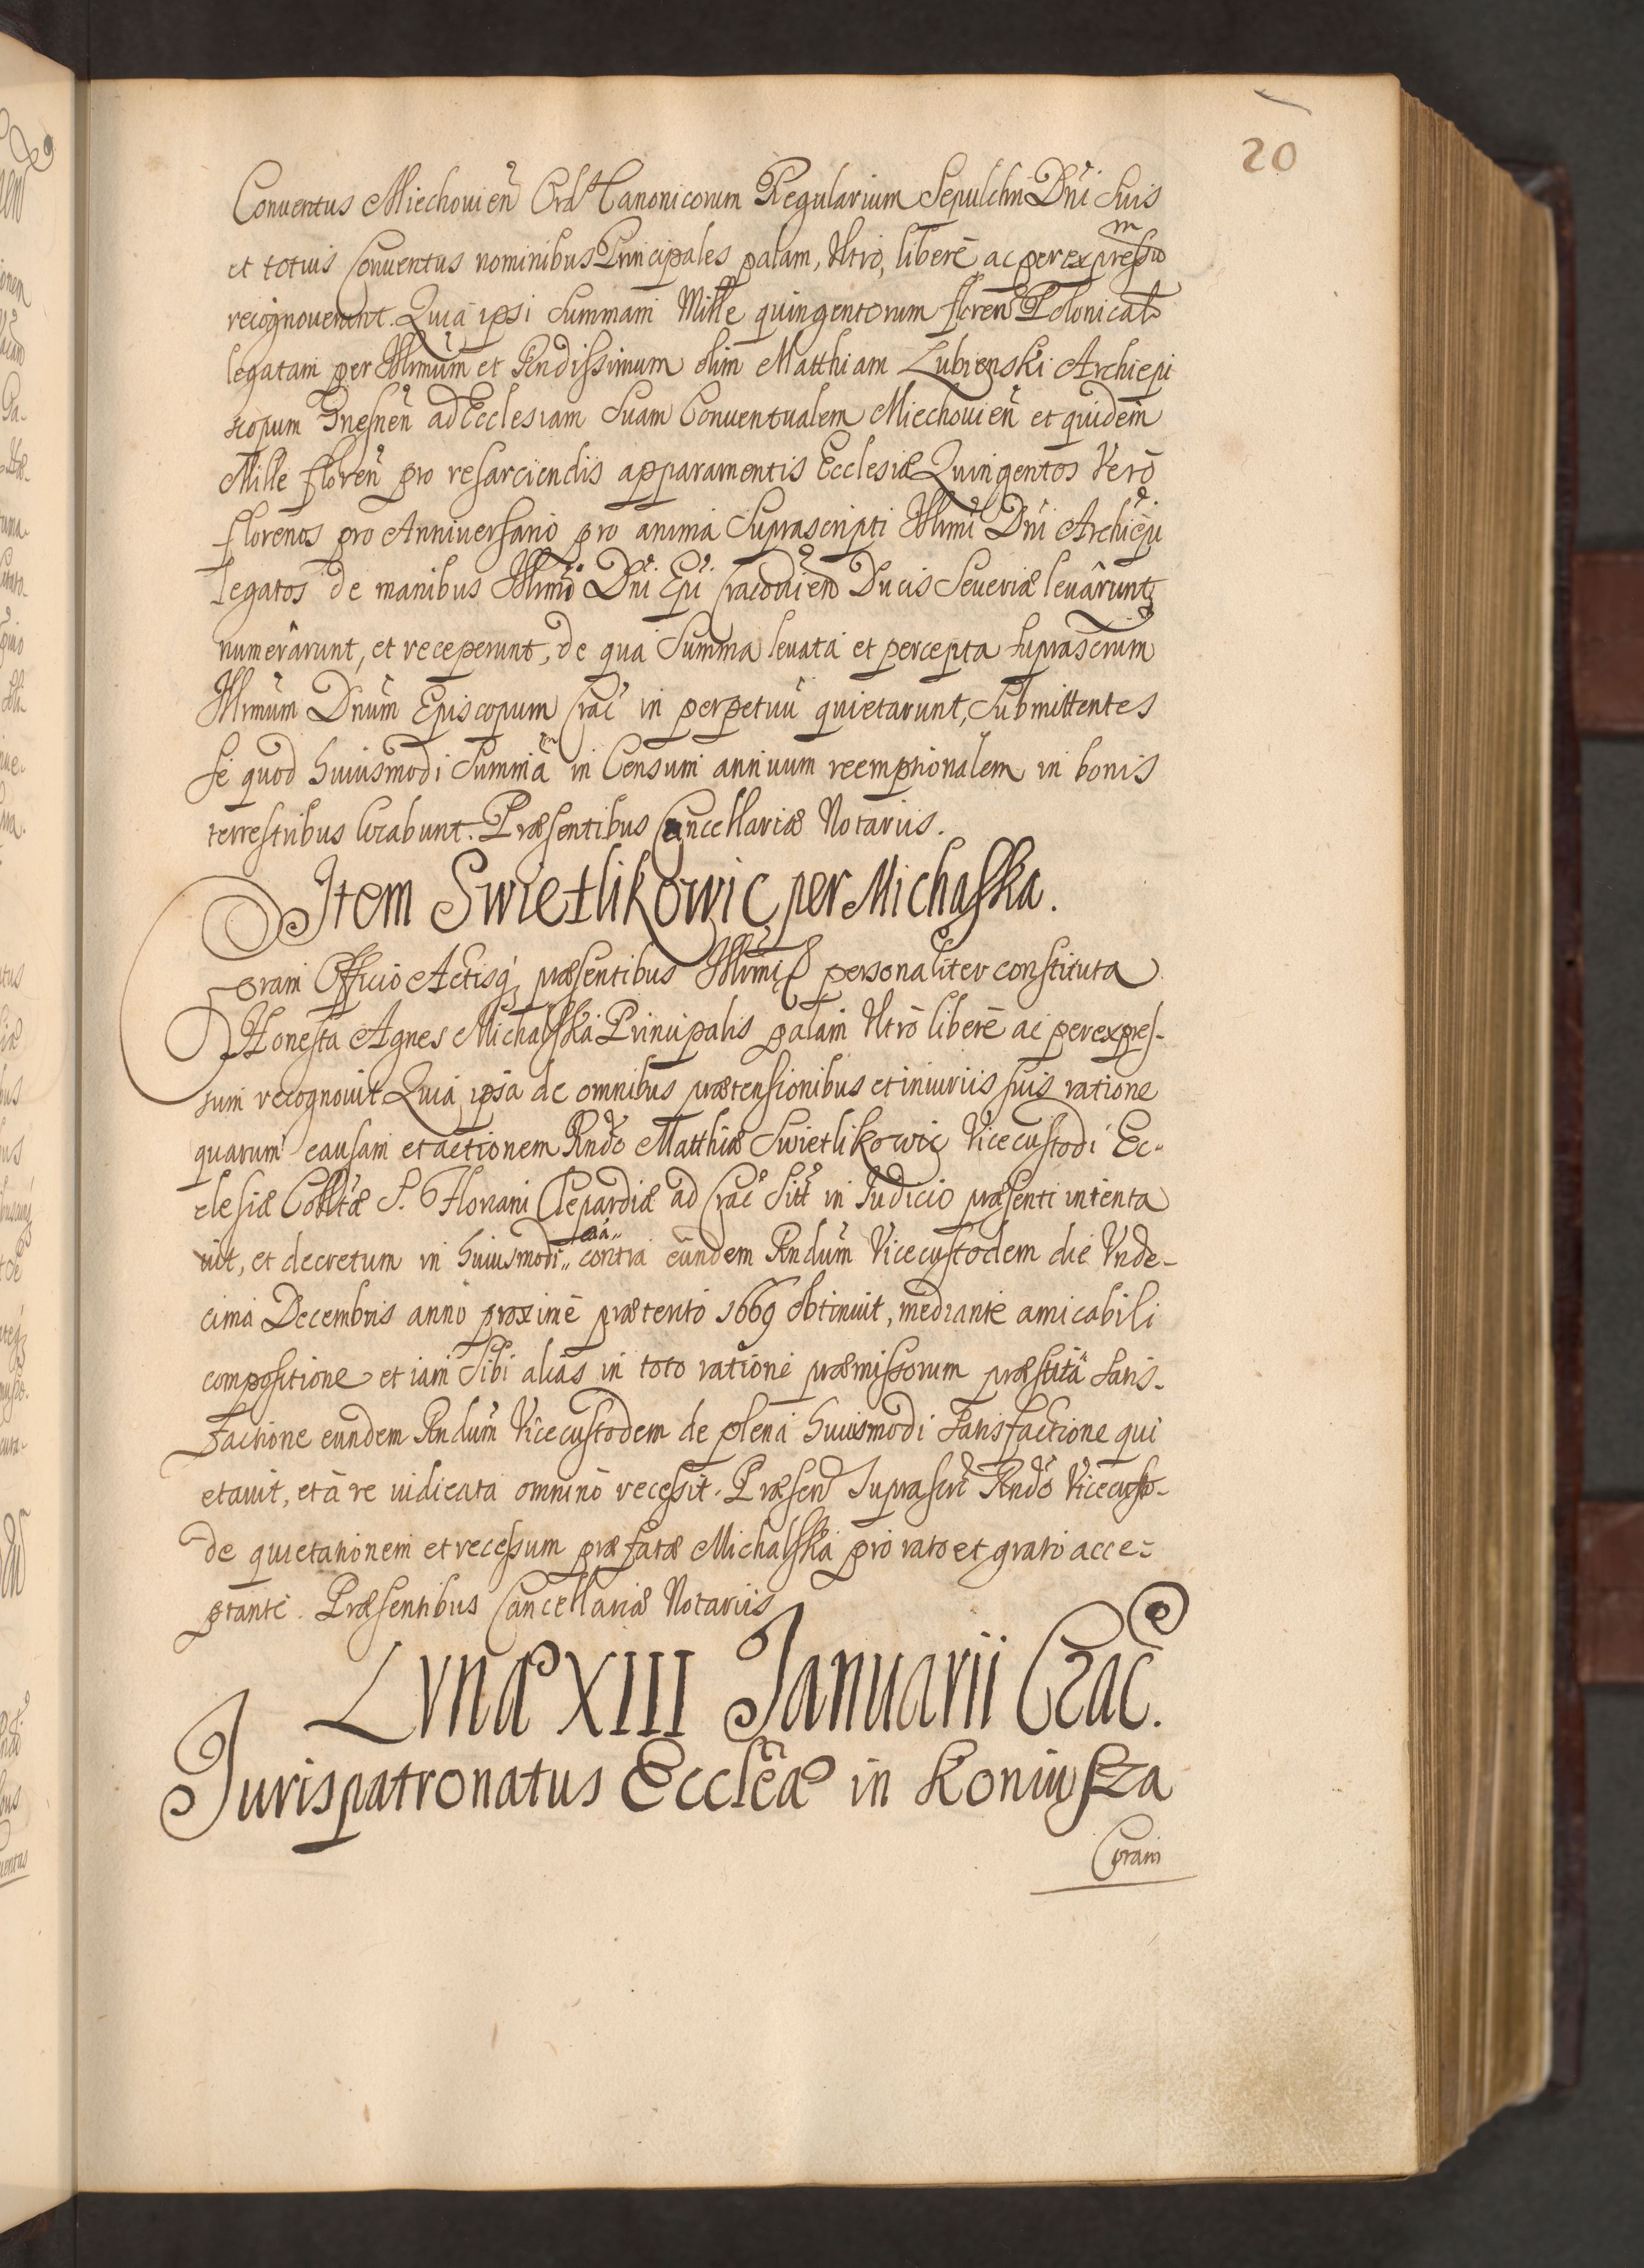 20
Conventus Miechovien Ord Canonicorum Regularium Sepulchri Dni Suis
et totius Conventus nominibus Principales palam, Ultrò, liberè ac per expressum
recognoverunt. Quià ipsi Summam Mille quingentorum floren Polonical
legatam per Illrmum et Rndissimum olim Matthiam Lubienski Archiepi
scopum Gnesnen ad Ecclesiam Suam Conventualem Miechovien et quidem
Mille floren pro resarciendis apparamentis Ecclesiæ Quingentos Verò
florenos pro Anniversario pro animà Suprascripti Illrmi Dni Archiepi
legatos de manibus Illrmi Dni Epi Cracovien Ducis Severiæ levârunt,
numerârunt, et receperunt, de quà Summa levatà et perceptà suprascrium
Illrmum Dnum Episcopum Crac in perpetuu quietarunt, Submittentes
se quod huiusmodi Summam in Censum annuum reemptionalem in bonis
terrestribus locabunt. Præsentibus Cancellariæ Notariis.
Item Swietlikowic per Michalska.
Coram Officio Actisq præsentibus Illrmi personaliter constituta
Honesta Agnes Michalska Principalis palam Ultrò liberè ac per expres-
sum recognovit Quià ipsa de omnibus prætensionibus et iniuriis suis ratione
quarum causam et actionem Rndo Matthiæ Swietlikowic Vicecustodi Ec-
clesiæ Colltæ S. Floriani Clepardiæ ad Crac Sitt in Iudicio præsenti intenta
vit, et decretum in huiusmodi caa contra eundem Rndum Vicecustodem die Unde-
cima Decembris anno proximè præterito 1669 obtinuit, mediante amicabili
compositione et iam Sibi aliàs in toto ratione præmissorum præstità Satis-
factione eundem Rndum Vicecustodem de plenà huiusmodi Satisfactione qui
etavit, et à re iudicata omninò recessit. Præsen Suprascri Rndo Vicecusto-
de quietationem et recessum præfatæ Michalska pro rato et grato acce-
ptante. Præsentibus Cancellariæ Notariis
Lunæ XIII Januarii Crac.
Jurispatronatus Eccleæ in Koniusza
Coram